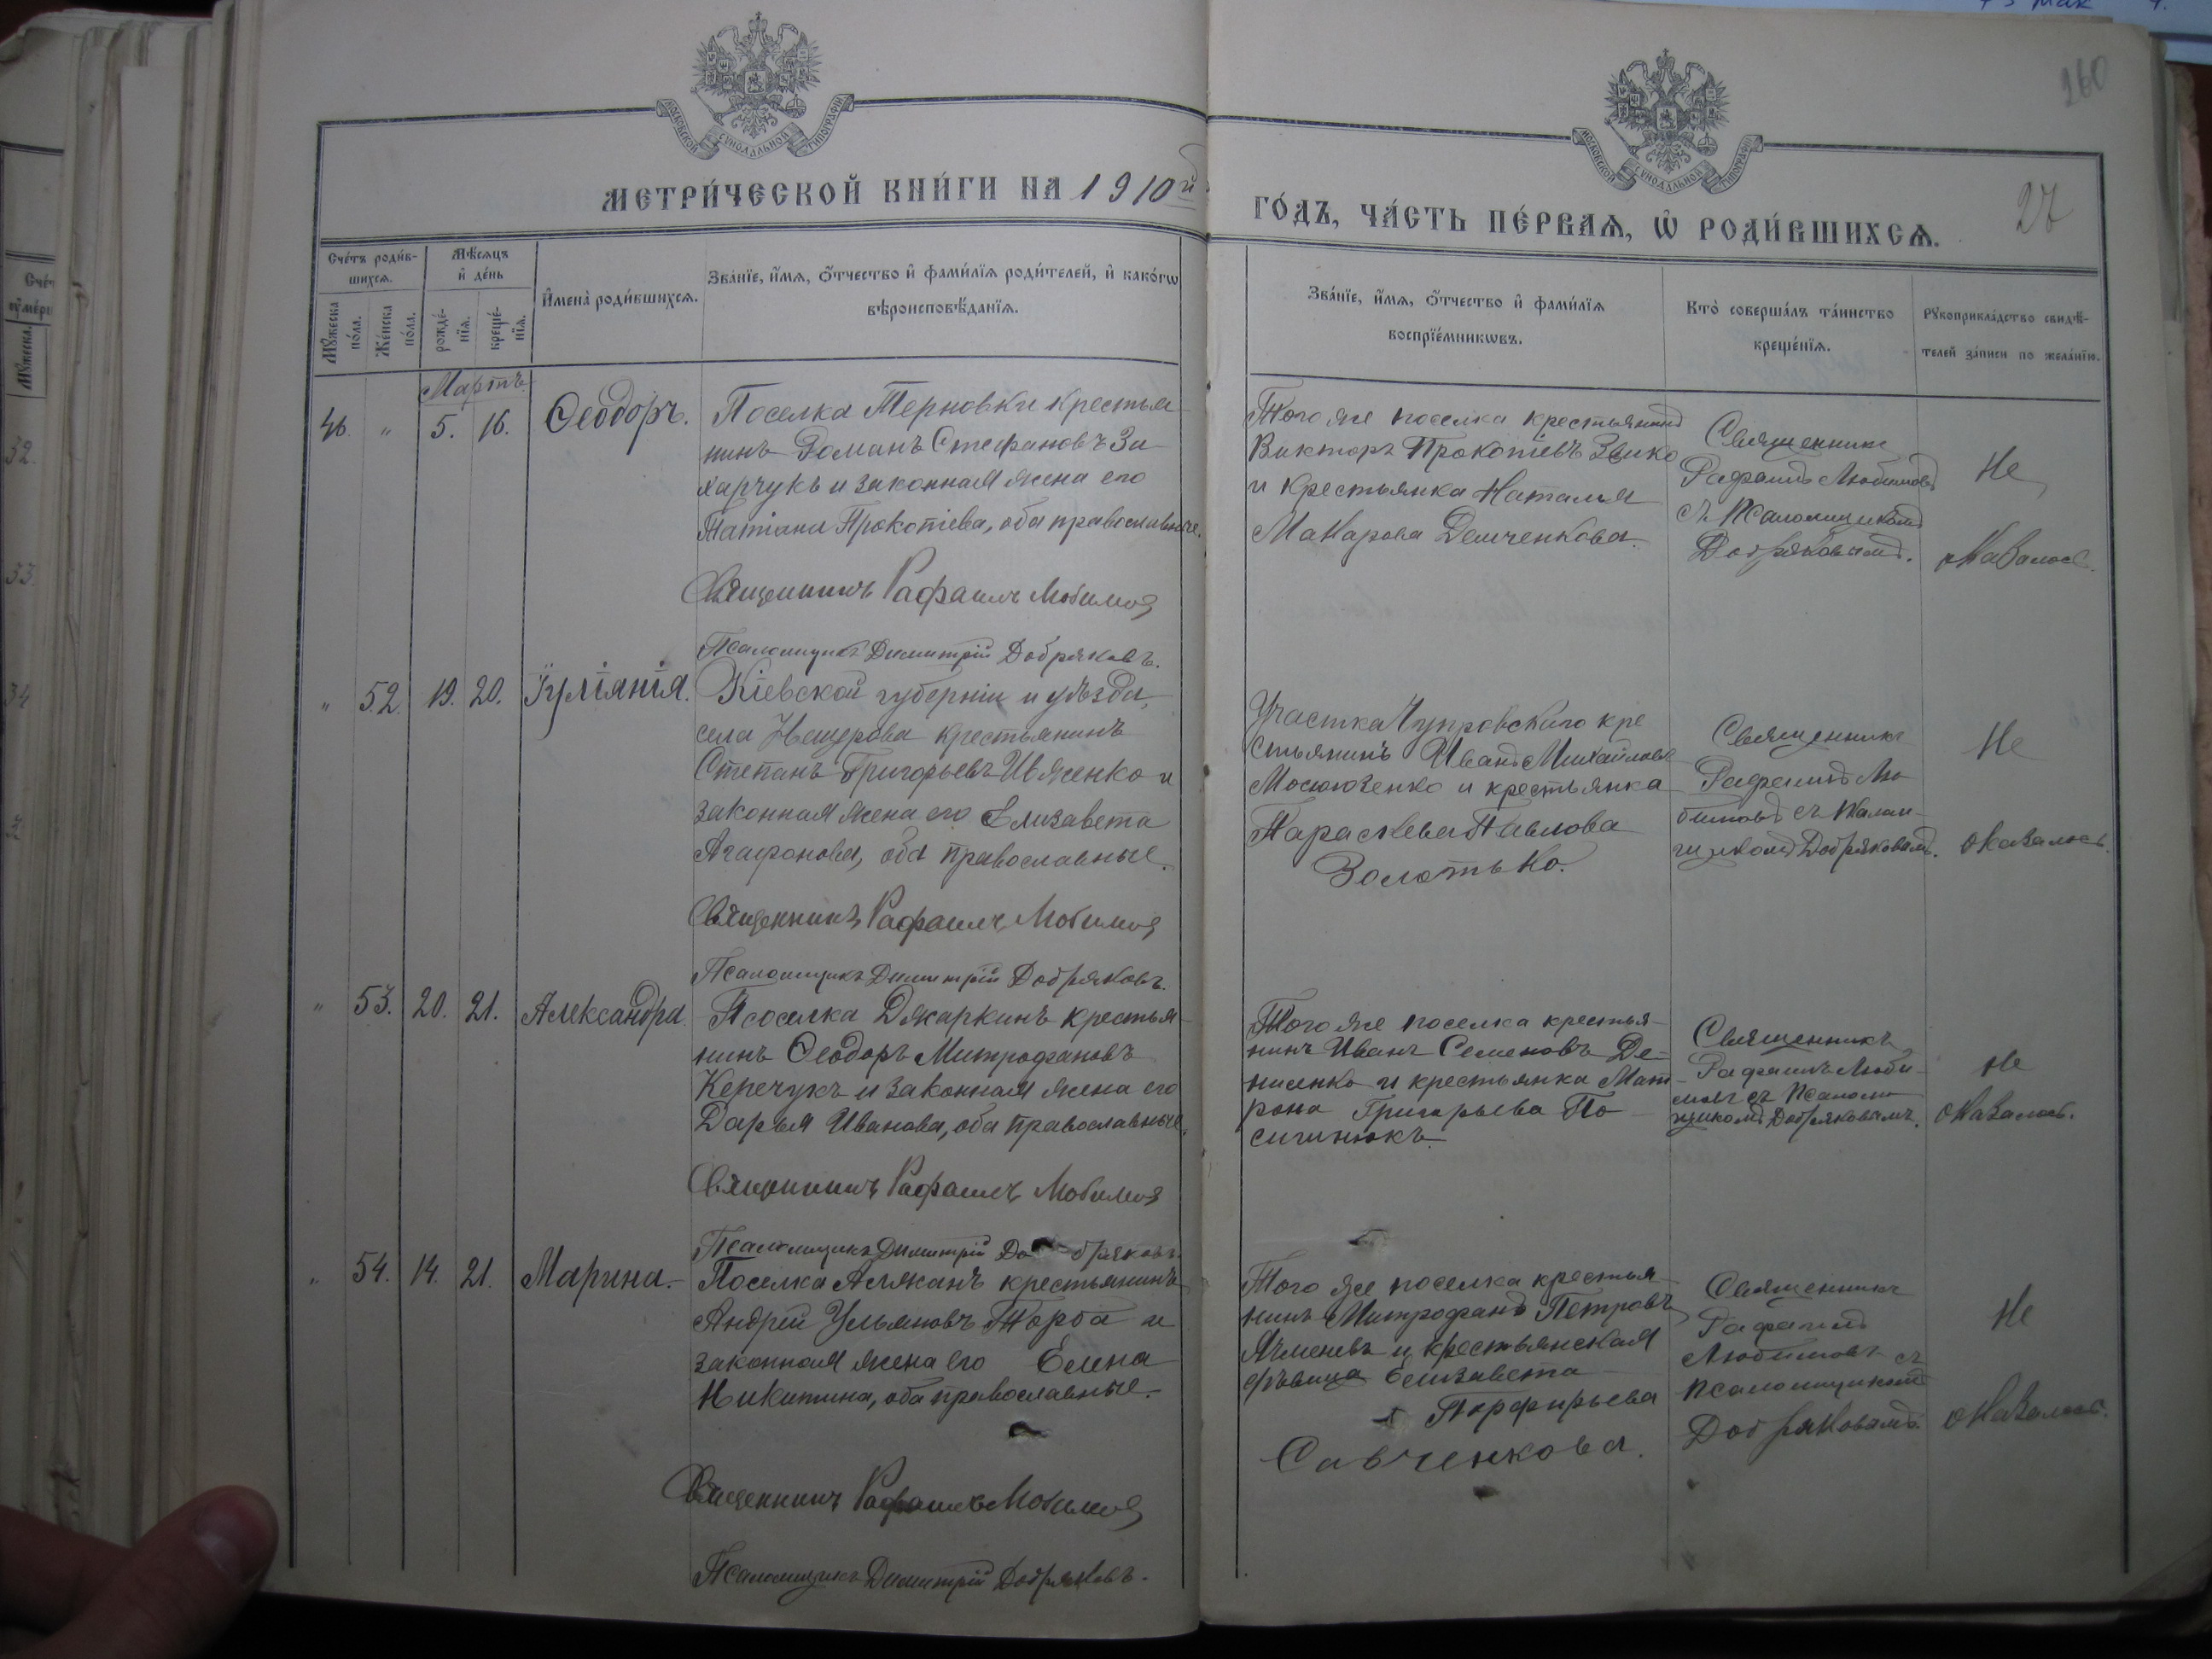 260
МОСКОВСКОЙ СѴНОДАЛЬНОЙ ТИПОГРАФІИ
МОСКОВСКОЙ СѴНОДАЛЬНОЙ ТИПОГРАФІИ
МЕТРИ́ЧЕСКОЙ КНИ́ГИ НА 1910й
ГО́ДЪ, ЧА́СТЬ ПЕ́РВАѦ, Ѡ҆ РОДИ́ВШИХСѦ.
27
Сче́тъ роди́в-
шихсѧ.
Мꙋ́жеска по́ла.
Же́нска по́ла.
Мѣ́сѧцъ
и҆ де́нь
рожде́-
нїѧ.
креще́-
нїѧ.
И҆мена̀ роди́вшихсѧ.
Зва́нїе, и҆́мѧ, ѻ҆́тчество и҆ фами́лїѧ роди́телей, и҆ како́гѡ
вѣроисповѣ́данїѧ.
Зва́нїе, и҆́мѧ, ѻ҆́тчество и҆ фами́лїѧ
воспрїе́мникѡвъ.
Кто̀ соверша́лъ та́инство
креще́нїѧ.
Рꙋкоприкла́дство свидѣ́-
телей за́писи по жела́нїю.
Мартъ
46. " 5. 16. Ѳеодоръ.
Поселка Терновки крестья-
нинъ Романъ Стефановъ За-
харчукъ и законная жена его
Татіана Прокопіева, оба православные.
Священникъ Рафаилъ Любимов
Псаломщикъ Димитрій Добряковъ.
Того же поселка крестьянинъ
Викторъ Прокопіевъ
и крестьянка Наталья
Макарова Демченкова.
Священникъ
Рафаилъ Любимовъ
съ Псаломщикомъ
Добряковымъ.
Не
оказалось.
" 52. 19. 20. Іуліанія.
Кіевской губерніи и уѣзда,
села Нещерова крестьянинъ
Степанъ Григорьевъ Ивженко и
законная жена его Елизавета
Агафонова, оба православные.
Священникъ Рафаилъ Любимов
Псаломщикъ Димитрій Добряковъ.
Участка Чупровскаго кре
стьянинъ Иванъ Михайловъ
и крестьянка
Параскева Павлова
Золотько.
Священникъ
Рафаилъ Лю-
бимовъ съ Псалом-
щикомъ Добряковымъ.
Не
оказалось.
" 53. 20. 21. Александра.
Поселка Джаркинъ крестья-
нинъ Ѳеодоръ Митрофановъ
Керечукъ и законная жена его
Дарья Иванова, оба православные.
Священникъ Рафаилъ Любимов
Псаломщикъ Димитрій Добряковъ.
Того же поселка крестья-
нинъ Иванъ Семеновъ Де-
ниенко и крестьянка Мат-
рона Григорьева По-
сигинюкъ.
Священникъ
Рафаилъ Люби-
мовъ съ Псалом
щикомъ Добряковымъ.
Не
оказалось.
" 54. 14. 21. Марина.
Поселка Алжанъ крестьянинъ
Андрей Ульяновъ Торба и
законная жена его Елена
Никитина, оба православные.
Священникъ Рафаилъ Любимов
Псаломщикъ Димитрій Добряковъ.
Того же поселка крестья-
нинъ Митрофанъ Петровъ
Ячменевъ и крестьянская
дѣвица Елизавета
Порфирьева
Савченкова.
Священникъ
Рафаилъ
Любимовъ съ
псаломщикомъ
Добряковымъ.
Не
оказалось.